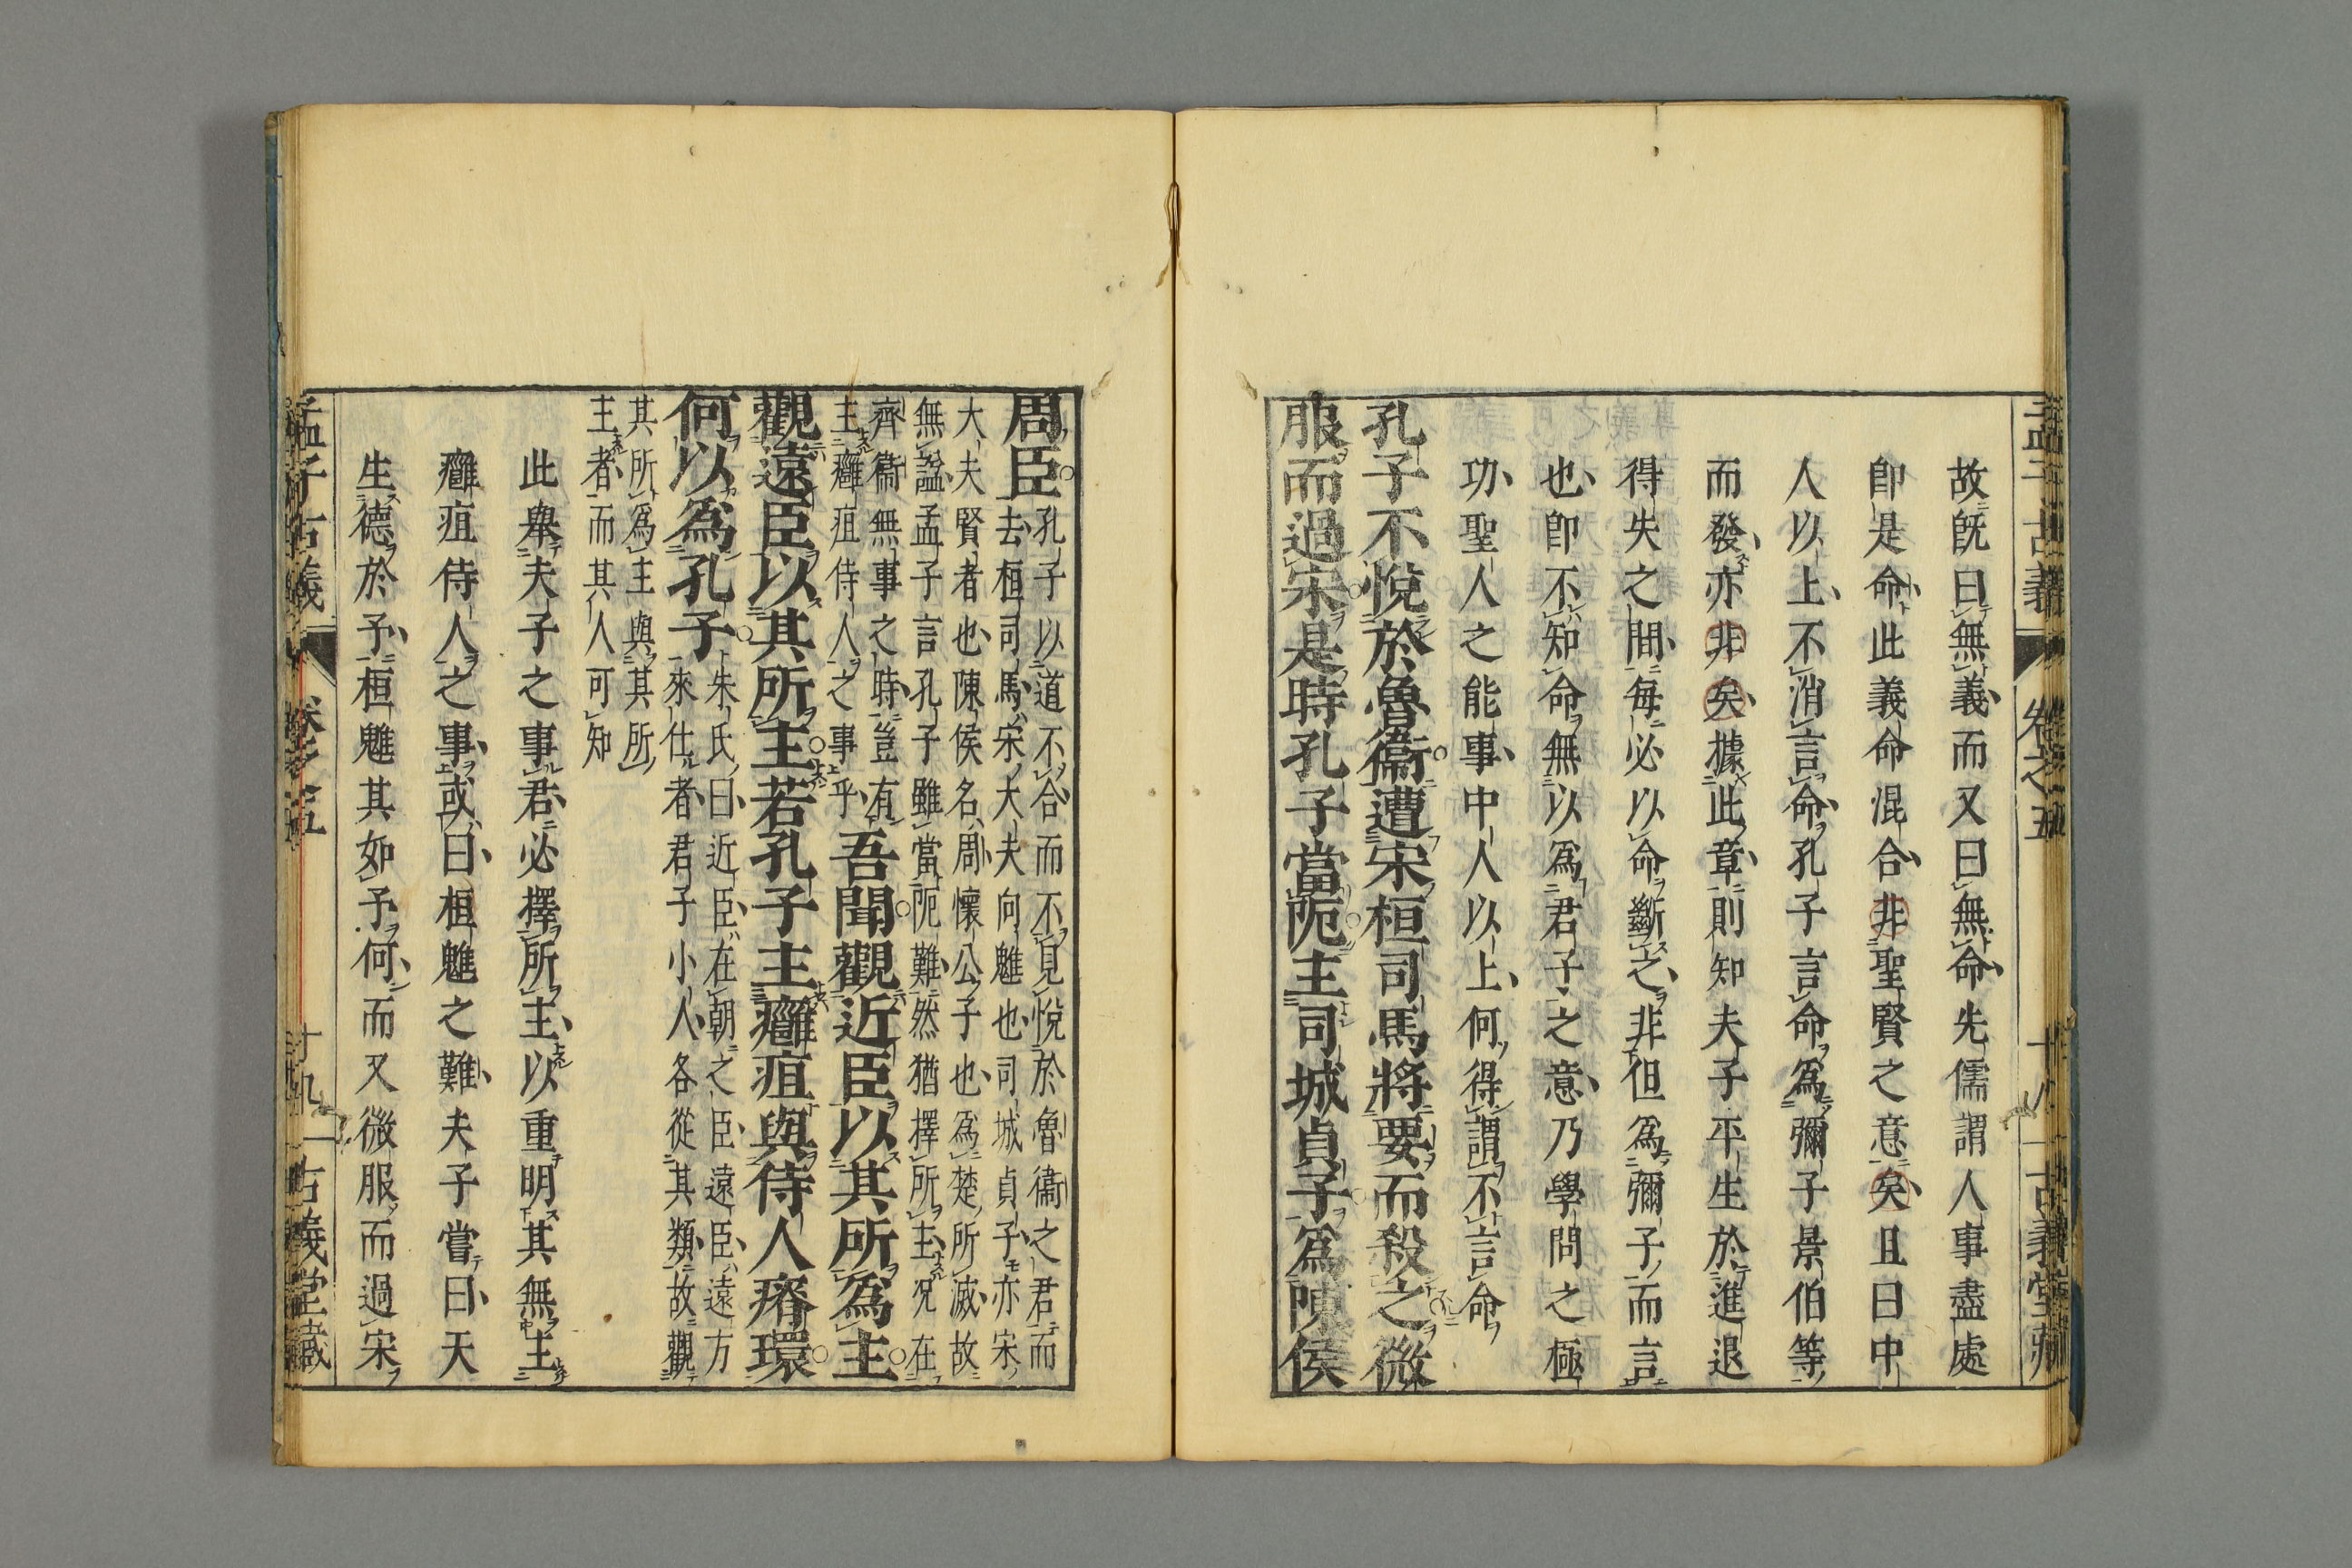 孟子古義 卷之五 十八 古義堂藏
故既曰無義而又曰無命先儒謂人事盡處
卽是命此義命混合非聖賢之意矣且曰中
人以上不消言命孔子言命爲彌子景伯等
而發亦非矣據此章則知夫子平生於進退
得失之間每必以命斷之非但爲彌子而言
也卽不知命無以爲君子之意乃學問之極
功聖人之能事中人以上何得謂不言命
孔子不悅於魯衞遭宋桓司馬將要而殺之微
服而過宋是時孔子當阨主司城貞子爲陳侯
周臣
孔子以道不合而不見悅於魯衞之君而
去桓司馬宋大夫向魋也司城貞子亦宋
大夫賢者也陳侯名周懷公子也爲楚所滅故
無謚孟子言孔子雖當阨難然猶擇所主况在
齊衞無事之時豈有
主癰疽侍人之事乎
吾聞觀近臣以其所爲主
觀遠臣以其所主若孔子主癰疽與侍人瘠環
何以爲孔子
朱氏曰近臣在朝之臣遠臣遠方
來仕者君子小人各從其類故觀
其所爲主與其所
主者而其人可知
此舉夫子之事君必擇所主以重明其無主
癰疽侍人之事或曰桓魋之難夫子嘗曰天
生德於予桓魋其如予何而又微服而過宋
孟子古義 卷之五 十九 古義堂藏